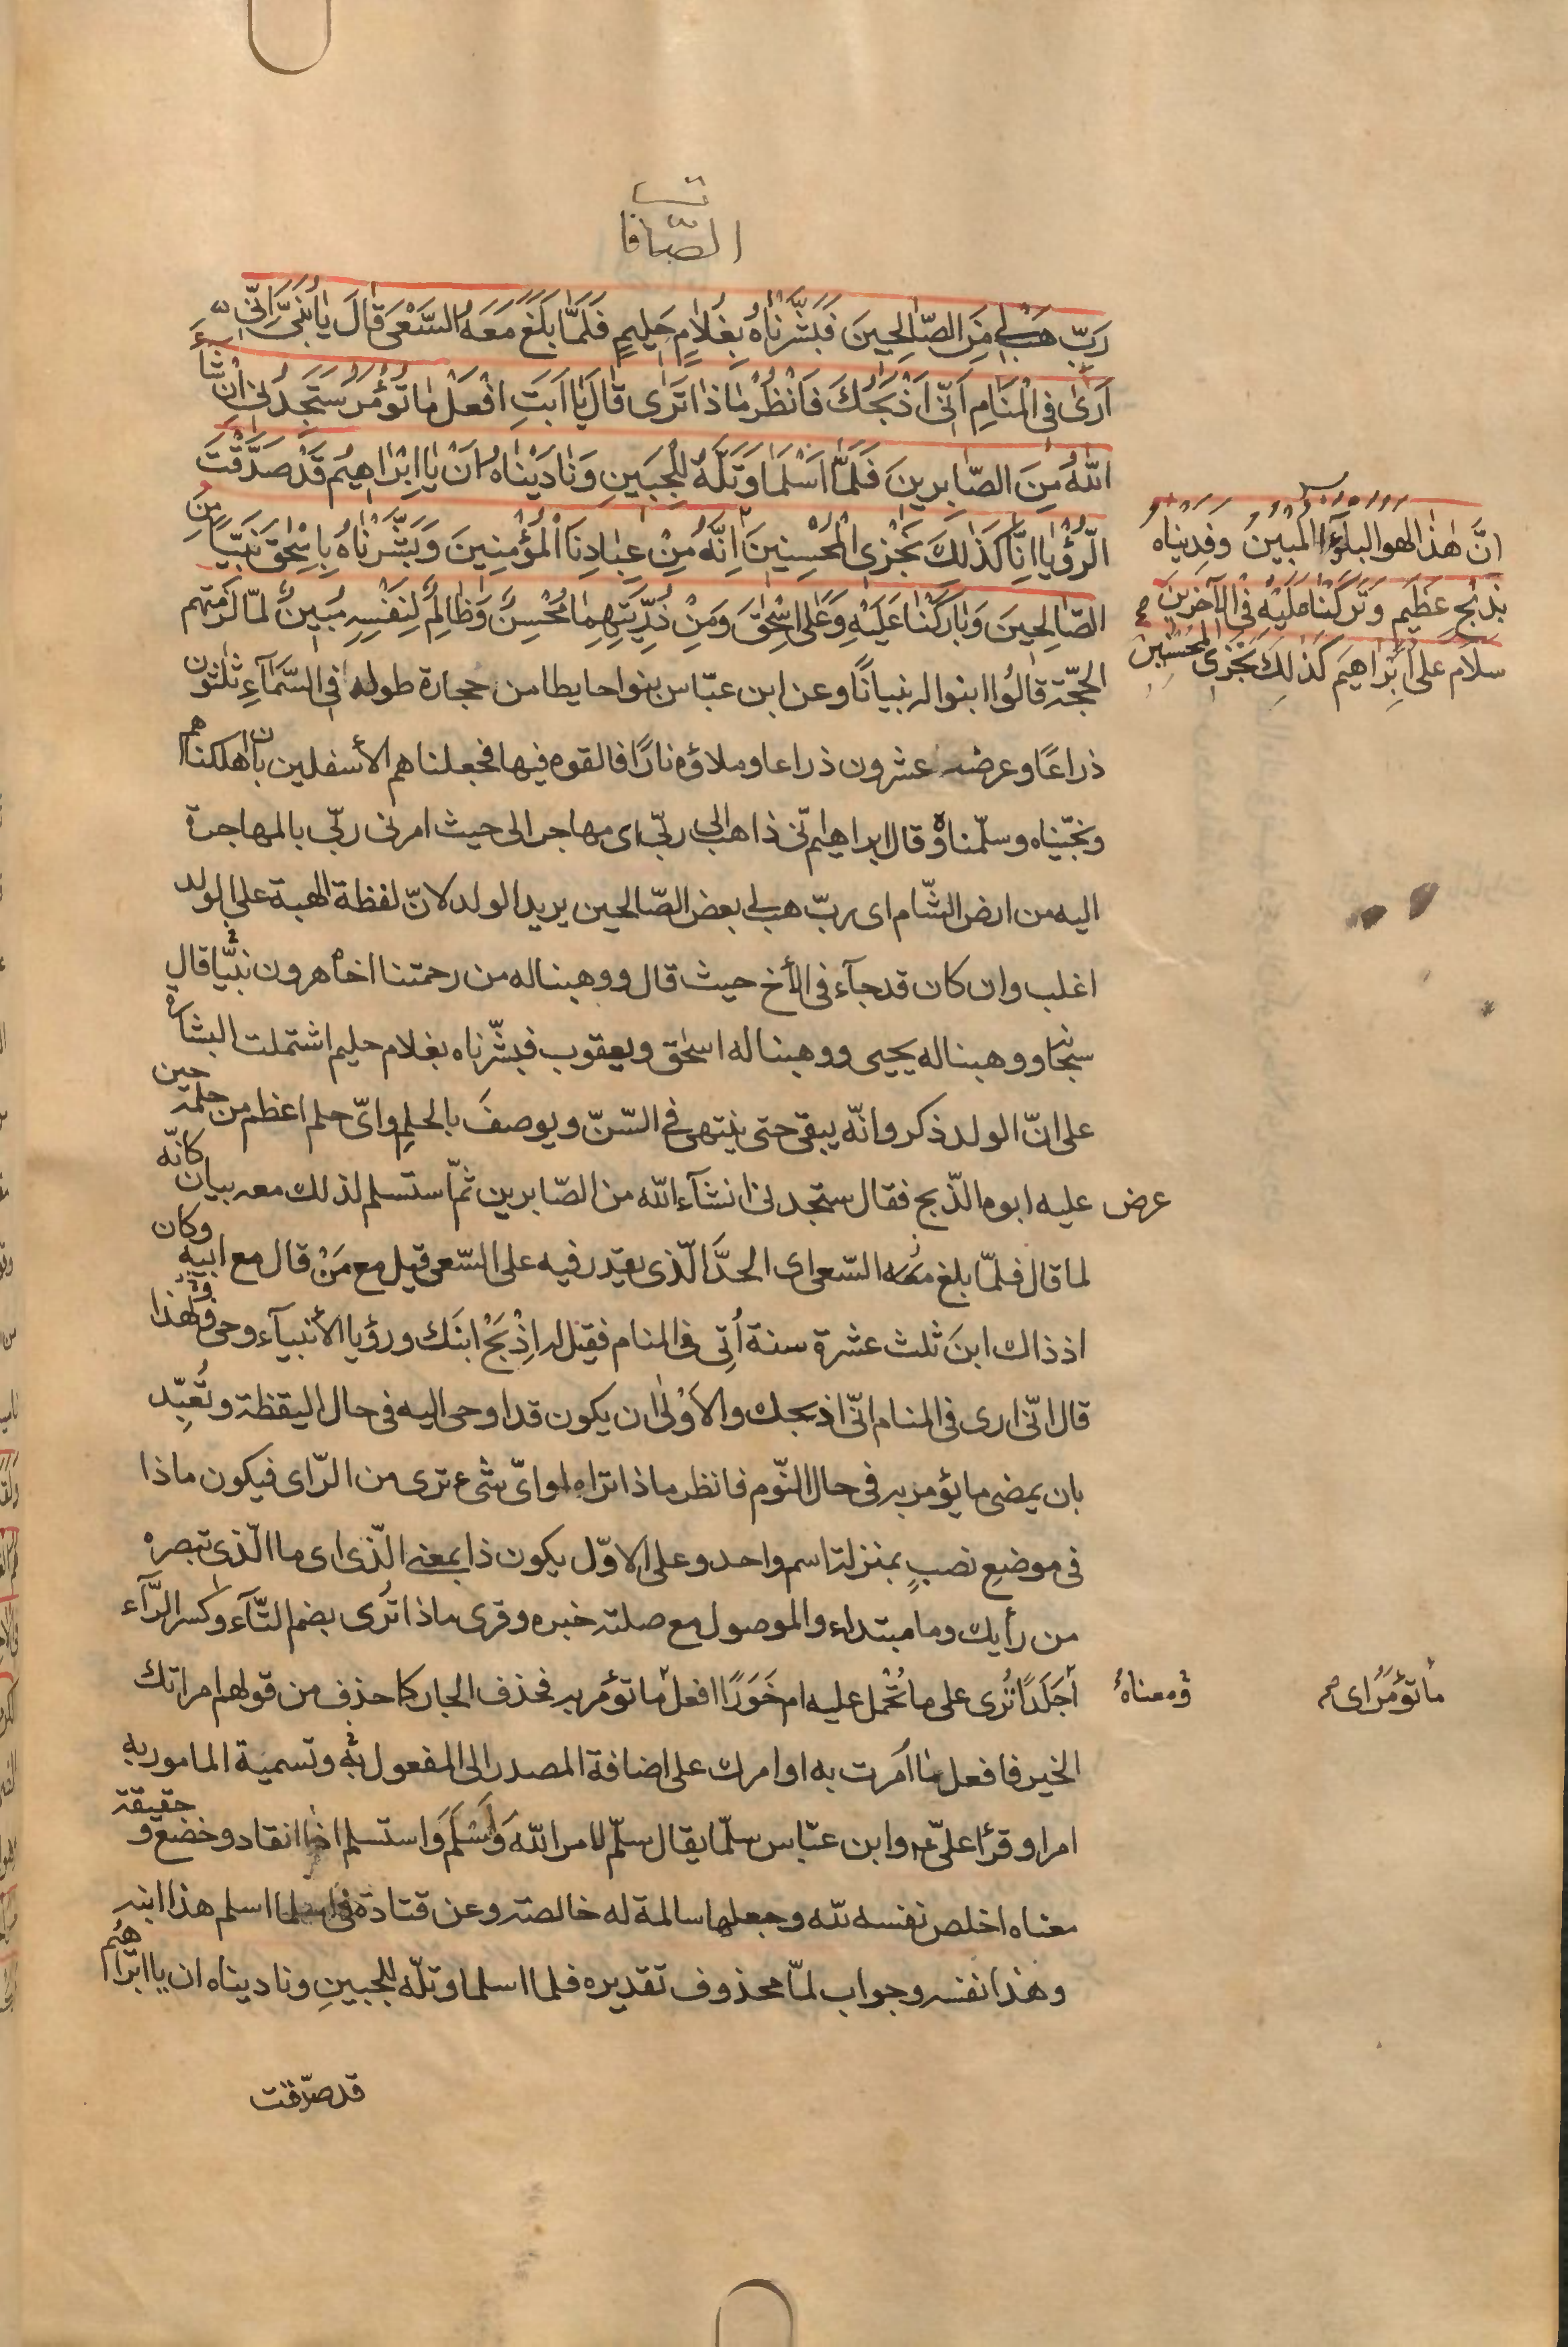 الصّافات
رَبِّ هَبْ لِي مِنَ الصّالِحِينَ فَبَشَّرْنَاهُ بِغُلَامٍ حَلِيمٍ فَلَمَّا بَلَغَ مَعَهُ السَّعْيَ قَالَ يَا بُنَيَّ اِنِّي
اَرَىٰ فِي الْمَنَامِ اَنِّي اَذْبَحُكَ فَانْظُرْ مَاذَا تَرَى قَالَ يَا اَبَتِ افْعَلْ مَا تُؤْمَرُ سَتَجِدُنِي اِنْ شَآءَ
اللّٰهُ مِنَ الصَّابِرِينَ فَلَمَّا اَسْلَمَا وَتَلَّهُ لِلْجَبِينِ وَنَادَيْنَاهُ اَنْ يَا اِبْرَاهِيمُ قَدْ صَدَّقْتَ
الرُّؤْيَا اِنَّا كَذَلِكَ نَجْزِي الْمُحْسِنِينَ اِنَّهُ مِنْ عِبَادِنَا الْمُؤْمِنِينَ وَبَشَّرْنَاهُ بِاِسْحٰقَ نَبِيًّا مِنَ
الصَّالِحِينَ وَبَارَكْنَا عَلَيْهِ وَعَلَى اِسْحٰقَ وَمِنْ ذُرِّيَّتِهِمَا مُحْسِنٌ وَظَالِمٌ لِنَفْسِهِ مُبِينٌ لمّا لزمتهم
انَّ هٰذا لهو البلٰٓؤا المبين وفديناه
بذبح عظيم وتركنا عليه في الآخرين
سلام على ابراهيم كذلك نجزي المحسنين
الحجّة قالُوا ابنوا له بنيانًا وعن ابن عبّاس بنوا حايطا من حجارة طوله في السَّمآءِ ثلثون
ذراعًا وعرضه عشرون ذراعا وملاؤه نارًا فالقوه فيها فجعلناهم الأسفلين بان اهلكناهم
ونجّيناه وسلّمناه وقال ابراهيم انّى ذاهب الى ربّى اى مهاجر الى حيث امرنى ربّى بالمهاجرة
اليه من ارض الشّام اى ربّ هب لى بعض الصّالحين يريد الولد لانّ لفظة الهبة على الولد
اغلب وان كان قد جآء في الأخ حيث قال ووهبنا له من رحمتنا اخاه هرون نبيًّا قال
سبحانه ووهبنا له يحيى ووهبنا له اسحٰق ويعقوب فبشّرناه بغلام حليم اشتملت البشارة
على انّ الولد ذكر وانّه يبقى حتى ينتهى في السّنّ ويوصفَ بالحلمِ واىّ حلم اعظم من حلمه حين
عرض عليه ابوه الذّبح فقال ستجدنى انشآء اللّه من الصّابرين ثمّ استسلم لذلك معه بيان كانّه
لما قال فلمّا بلغ معه السّعى اى الحدَّ الّذى يقدر فيه على السّعى قيل مع مَنْ قال مع ابيهِ وكان
اذ ذاك ابنَ ثلث عشرة سنة اُتِى في المنام فقيل له اِذْبَحْ ابنَك ورؤيا الأنبيآء وحى فلهذا
قال انّى ارى في المنام انّى اذبحك والأوْلىٰ ان يكون قد اوحى اليه في حال اليقظة وتُعُبِّد
بان يمضى ما يؤمر به في حال النّوم فانظر ماذا تراه او اىّ شىء ترى من الرّاى فيكون ماذا
في موضع نصبٍ بمنزلة اسم واحد وعلى الاوّل يكون ذا بمعنى الّذى اى ما الّذى تبصره
من رأيك وما مبتداء والموصول مع صلته خبره وقرى ماذا تُرى بضم التّآء وكسر الرّآء
ومعناهُ
أجَلَدًا تُرى على ما تُحْمل عليه ام خَوَرًا افعل ما تؤمر به فحذف الجار كما حذف من قولهم امرتك
ما تؤمرُ اى
الخير فافعل ما اُمرت به او امرك على اضافة المصدر الى المفعول به وتسمية المامور به
امرا وقرأ علىّ وابن عبّاس سلّما يقال سلّم لامر اللّه وَاَسْلَمَ وَاستسلم اذا انقاد وخضع و حقيقة
معناه اخلص نفسه للّه وجعلها سالمة له خالصة وعن قتادة في اسلما اسلم هذا ابنه
وهٰذا نفسه وجواب لمّا محذوف تقديره فلما اسلما وتلّه للجبينِ وناديناه ان يا ابراهيم
قد صدّقت